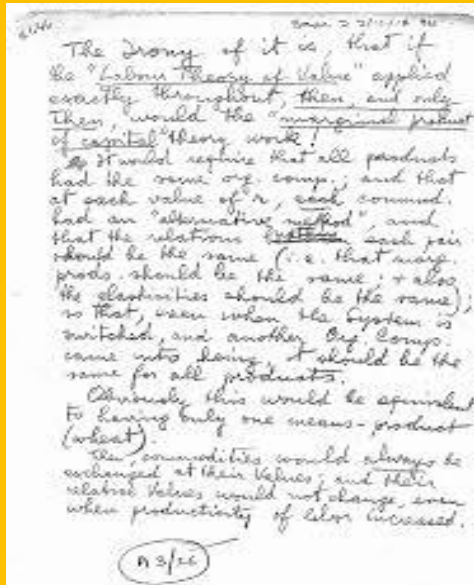 The Irony of it is, that if
the "Labour Theory of Value" applied
exactly throughout, then, and only
then, would the "marginal product
of capital" theory work!
It would require that all products
had the same org. comp.; and that
at each value of r, each commod.
had an "alternative method", and
that the relations each pair
should be the same (i.e. that marg.
prods. should be the same; & also
the elasticities should be the same),
so that, even when the System is
switched, and another Org. Comp.
came into being, it should be the
same for all products.
Obviously this would be equivalent
to having only one means-product
(wheat).
Then, commodities would always be
exchanged at their Values; and their
relative Values would not change, even
when productivity of labor increased.